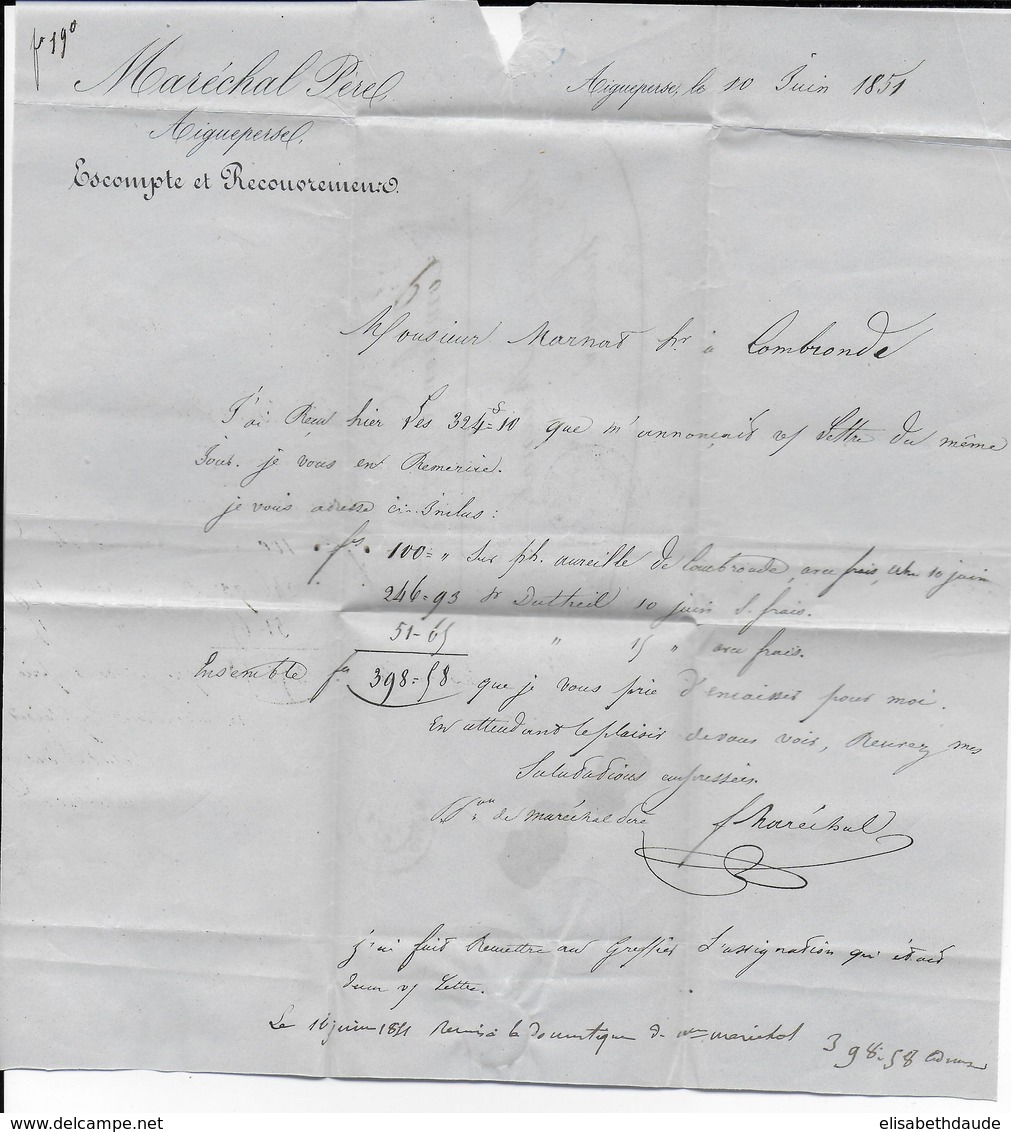 fo 190
Maréchal Père,
Aigueperse, le 10 Juin 1851
Aigueperse,
Escompte et Recouvrements.
Monsieur Marnat hr à Combronde
J'ai Reçu hier les 324=10 que m'annonçait v/ Lettre du même
Jour. je vous en Remercie.
je vous adresse ci-Inclus:
fs. 100=" Sur ph. aureille de Combronde, avec frais, 10 juin
246=93 Sr Dutheil 10 juin S. frais.
51-65 " 15 " avec frais.
Ensemble fs 398=58 que je vous prie d'encaisser pour moi.
En attendant le plaisir de vous voir, Recevez mes
Salutations empressées.
Pon de maréchal père fMaréchal
j'ai fait Remettre au Greffier L'assignation qui était
dans v/ Lettre.
Le 16 juin 1851 Remis à la domestique de Mr marechal 398=58
elisabethdaude